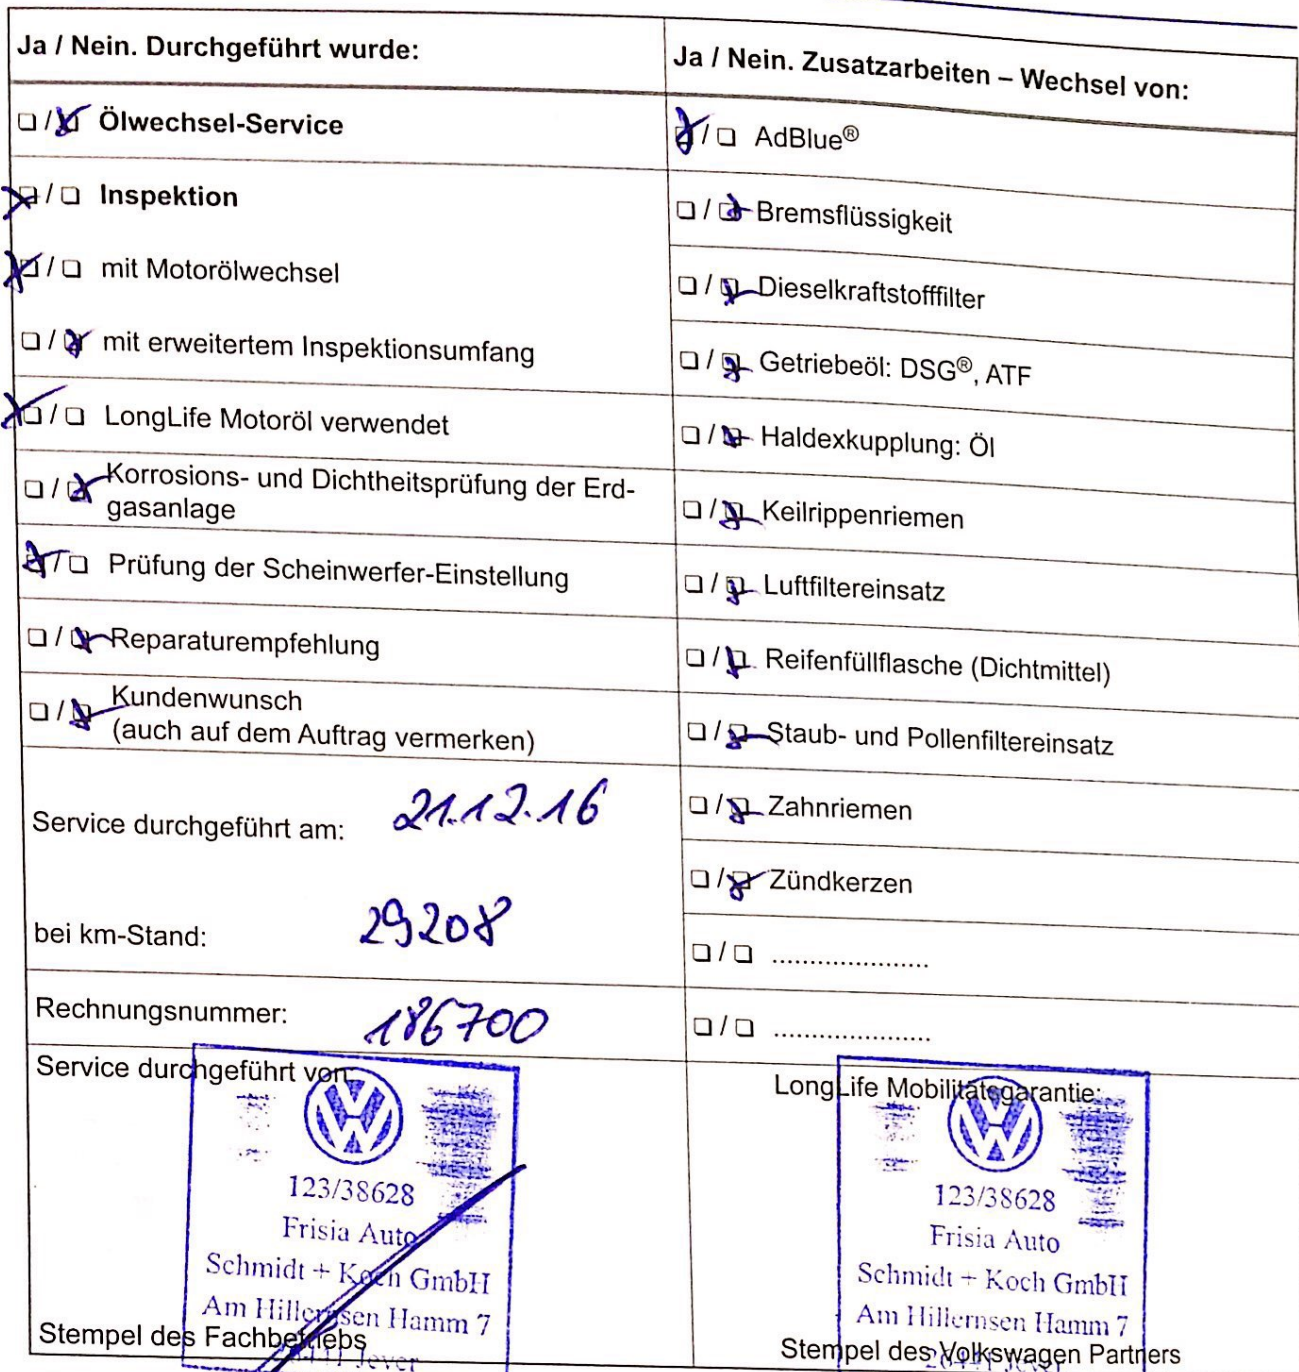 Ja / Nein. Durchgeführt wurde:
Ölwechsel-Service
Inspektion
mit Motorölwechsel
mit erweitertem Inspektionsumfang
LongLife Motoröl verwendet
Korrosions- und Dichtheitsprüfung der Erd-
gasanlage
Prüfung der Scheinwerfer-Einstellung
Reparaturempfehlung
Kundenwunsch
(auch auf dem Auftrag vermerken)
Service durchgeführt am: 21.12.16
bei km-Stand: 29208
Rechnungsnummer: 186700
Service durchgeführt von:
123/38628
Frisia Auto
Schmidt + Koch GmbH
Am Hillernsen Hamm 7
26441 Jever
Stempel des Fachbetriebs
Ja / Nein. Zusatzarbeiten – Wechsel von:
AdBlue®
Bremsflüssigkeit
Dieselkraftstofffilter
Getriebeöl: DSG®, ATF
Haldexkupplung: Öl
Keilrippenriemen
Luftfiltereinsatz
Reifenfüllflasche (Dichtmittel)
Staub- und Pollenfiltereinsatz
Zahnriemen
Zündkerzen
LongLife Mobilitätsgarantie:
123/38628
Frisia Auto
Schmidt + Koch GmbH
Am Hillernsen Hamm 7
26441 Jever
Stempel des Volkswagen Partners